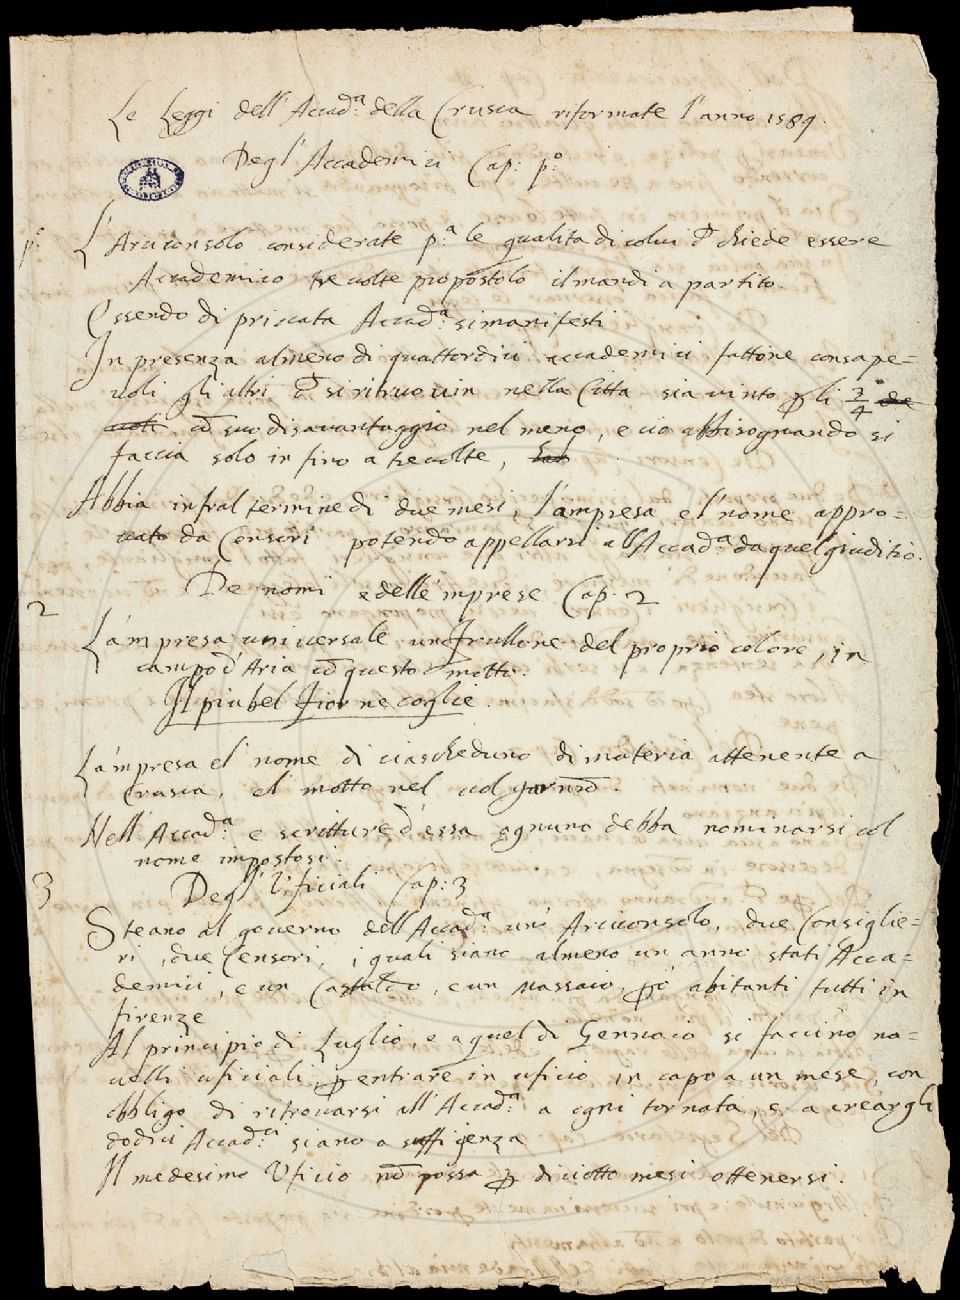 Le Leggi dell'Accad.ª della Crusca riformate l'anno 1589.
Degl'Accademici Cap: p.º
p.º L'Arciconsolo considerate p.ª le qualita di colui ch̄ chiede essere
Accademico tre volte propostolo il mandi a partito.
Essendo di privata Accad.ª si manifesti
In presenza almeno di quattordici accademici fattone consape=
voli gli altri ch̄ si ritruovin nella Citta sia vinto ꝑ li 3/4 de
voti, cō suo disavantaggio nel meno, e ciò abbisognando si
faccia solo in fino a tre volte,
Abbia infral termine di due mesi, l'ampresa e'l nome appro=
vato da Censori potendo appellarsi all'Accad.ª da quel giuditio.
De nomi e delle'mprese Cap. 2
2 La'mpresa universale un Frullone del proprio colore, in
campo d'Aria cō questo motto.
Il piu bel Fior ne coglie.
La'mpresa e'l nome di ciascheduno di materia attenente a
Crusca, e'l motto nel
Nell'Accad.ª e scritture d'essa ognuno debba nominarsi col
nome impostosi.
3 Degl'Uficiali Cap: 3
Steano al governo dell'Accad.ª un'Arciconsolo, due Consiglie=
ri, due Censori, i quali siano almeno un anno stati Acca=
demici, e un Castaldo, e un Massaio, ꝑò abitanti tutti in
firenze
Al principio di Luglio, e a quel di Gennaio si faccino no=
velli uficiali, ꝑ entrare in uficio in capo a un mese, con
obbligo di ritrovarsi all'Accad.ª a ogni tornata, e a creargli
dodici Accad.ci siano a sufficienza
Il medesimo Uficio nō possa ꝑ diciotto mesi ottenersi.